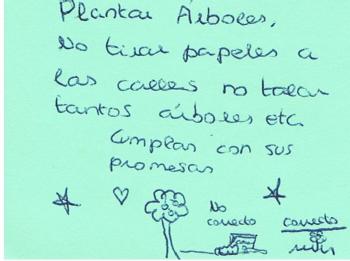 Plantar Árboles,
No tirar papeles a
las calles no talar
tantos árboles etc.
Cumplas con sus
promesas
No
correcto
correcto